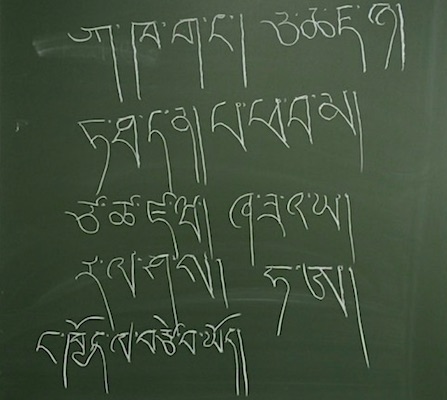 ཀ་ཁ་ག་ང་། ཅ་ཆ་ཇ་ཉ།
ཏ་ཐ་ད་ན། པ་ཕ་བ་མ།
ཙ་ཚ་ཛ་ཝ། ཞ་ཟ་འ་ཡ།
ར་ལ་ཤ་ས། ཧ་ཨ།
ང་ཁྱོད་ལ་བརྩེ་བ་ཡོད།